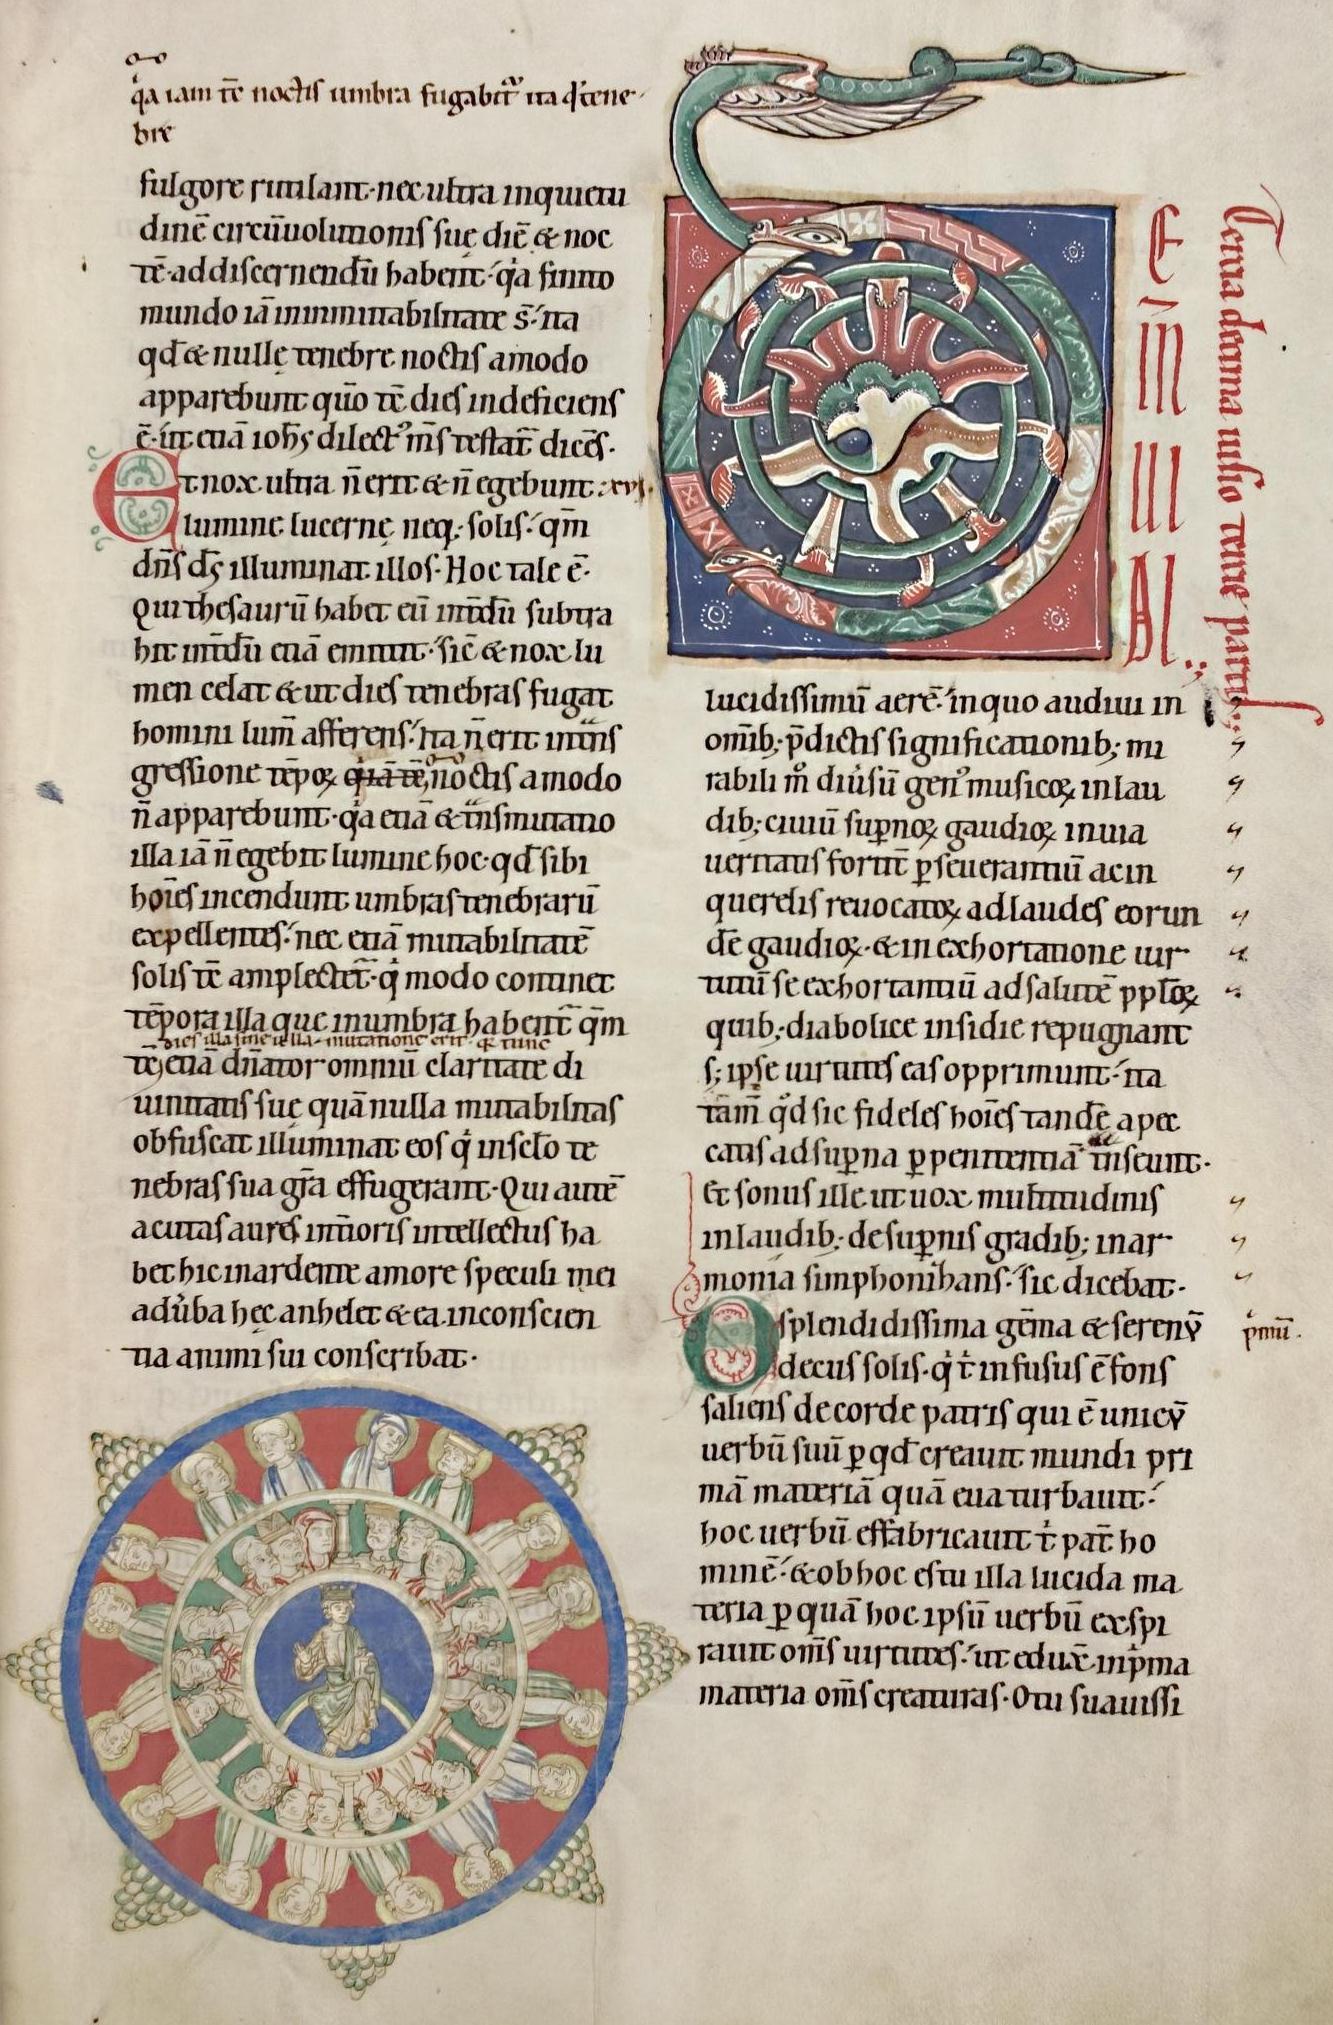 q̇a iam tē noctis umbra fugabit᷑ ita qd̄ tene-
bre
fulgore rutilant· nec ultra inquietu
dinē circūuolutionis suę diē & noc
tē· ad discernendū habent· q̇a finito
mundo iā in inmutabilitate s̄· ita
qd̄ & nullę tenebre noctis amodo
apparebunt quō tē dies indeficiens
ē· ut etiā ioh̄s dilect᷒ m̄s testat᷑ dicēs·
Et nox ultra n̄ erit & n̄ egebunt ·xvi·
lumine lucernę neq; solis· qm̄
dn̄s ds̄ illuminat illos· Hoc tale ē·
Qui thesaurū habet eū int̄dū subtra
hit int̄dū etiā emittit· sic̄ & nox lu
men celat & ut dies tenebras fugat
homini lum̄ afferens· ita n̄ erit in t̄ns
gressione tēpoꝝ q̇a tē noctis amodo
n̄ apparebunt· q̇a etiā & t̄nsmutatio
illa iā n̄ egebit lumine hoc· qd̄ sibi
hoīes incendunt umbras tenebrarū
expellentes· nec etiā mutabilitatē
solis tē amplectet᷑· q̇ modo continet
tēpora illa que in umbra habent᷑ qm̄
dies illa sine ulla mutatione erit· q̇a tunc
tē; etiā dn̄ator omniū claritate di
uinitatis suę quā nulla mutabilitas
obfuscat illuminat eos q̇ in sclō te
nebras sua gr̄a effugerant· Qui autē
acutas aures int̄ioris intellectus ha
bet hic in ardente amore speculi mei
ad u̇ba hęc anhelet & ea in conscien
tia animi sui conscribat·
Tercia decima uisio tercie partis
EIN
DE
UI
DI
lucidissimū aerē· in quo audiui in
omīb; p̄dictis significationib; mi
rabili m̊ diu̇sū gen᷒ musicoꝝ in lau
dib; ciuiū sup̄noꝝ gaudioꝝ in uia
ueritatis fortit̄ ꝑseuerantiū ac in
querelis reuocatoꝝ ad laudes eorun
dē gaudioꝝ· & in exhortatione uir-
tutū se exhortantiū ad salutē pplōꝝ
quib; diabolice insidie repugnant
s; ipse uirtutes eas opprimunt· ita
tam̄ qd̊ sic fideles hoīes tandē a pec
catis ad sup̄na ꝑ penitentiā t̄nseunt·
Et sonus ille ut uox multitudinis
in laudib; de sup̄nis gradib; in ar-
monia simphonizans· sic dicebat·
O splendidissima gēma & serenū
decus solis· q̇ t̊ infusus ē fons
saliens de corde patris qui ē unicū
uerbū suū ꝑ qd̄ creauit mundi pri
mā materiā quā eua turbauit·
hoc uerbū effabricauit t̊ pat̄ ho
minē· & ob hoc es tu illa lucida ma
teria ꝑ quā hoc ipsū uerbū exspi
rauit om̄s uirtutes· ut eduxͭ in p̊ma
materia om̄s creaturas· O tu suauissi